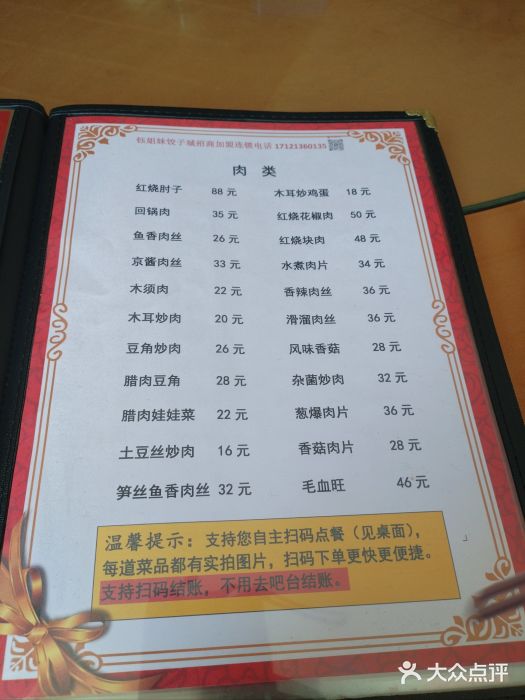 钰姐妹饺子城招商加盟连锁电话 17121360135
肉 类
红烧肘子 88 元 木耳炒鸡蛋 18 元
回锅肉 35 元 红烧花椒肉 50 元
鱼香肉丝 26 元 红烧块肉 48 元
京酱肉丝 33 元 水煮肉片 34 元
木须肉 22 元 香辣肉丝 36 元
木耳炒肉 20 元 滑溜肉丝 36 元
豆角炒肉 26 元 风味香菇 28 元
腊肉豆角 28 元 杂菌炒肉 32 元
腊肉娃娃菜 22 元 葱爆肉片 36 元
土豆丝炒肉 16 元 香菇肉片 28 元
笋丝鱼香肉丝 32 元 毛血旺 46 元
温馨提示：支持您自主扫码点餐（见桌面），
每道菜品都有实拍图片，扫码下单更快更便捷。
支持扫码结账，不用去吧台结账。
大众点评